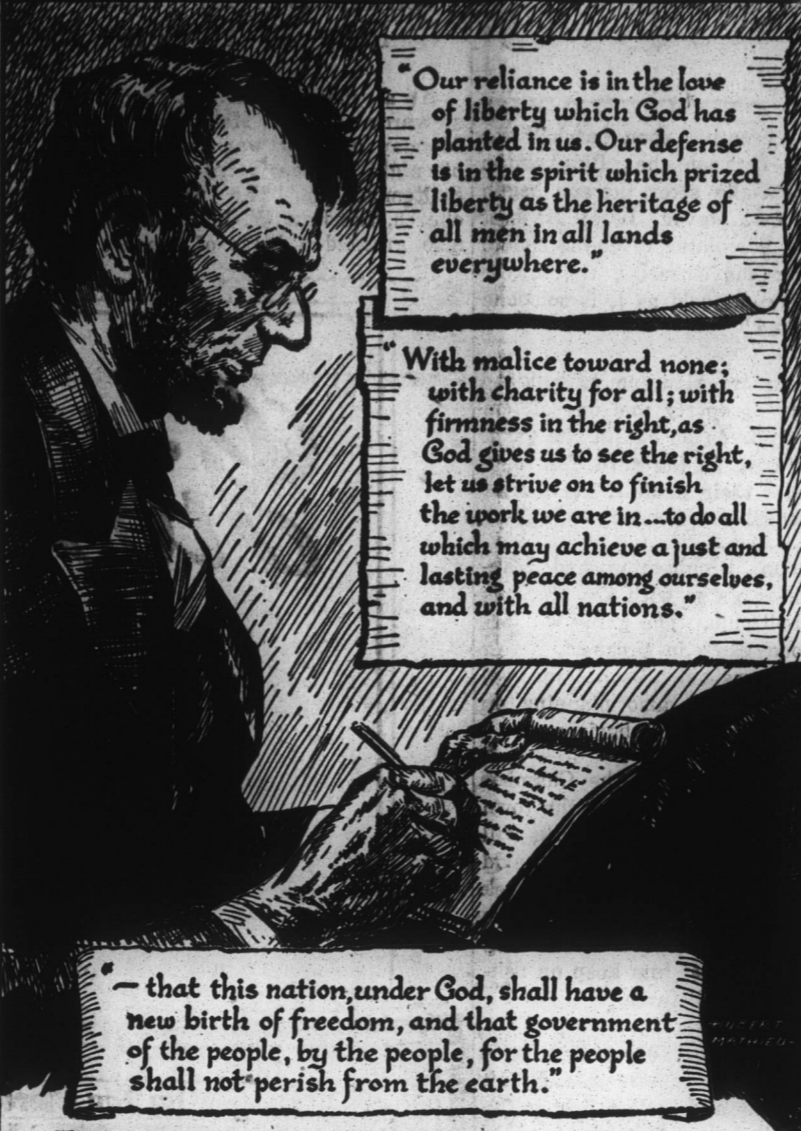 "Our reliance is in the love
of liberty which God has
planted in us. Our defense
is in the spirit which prized
liberty as the heritage of
all men in all lands
everywhere."
"With malice toward none;
with charity for all; with
firmness in the right, as
God gives us to see the right,
let us strive on to finish
the work we are in...to do all
which may achieve a just and
lasting peace among ourselves,
and with all nations."
"— that this nation, under God, shall have a
new birth of freedom, and that government
of the people, by the people, for the people
shall not perish from the earth."
MATHIEU-